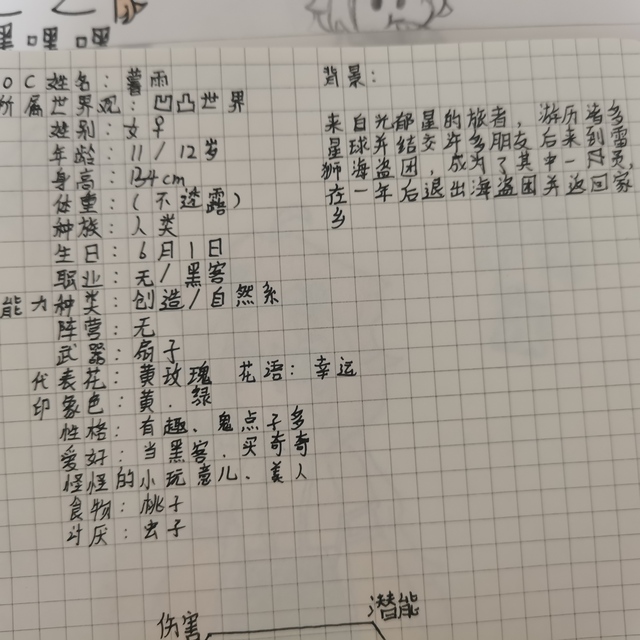 嘿嘿嘿
OC姓名：薯雨
所属世界观：凹凸世界
姓别：女♀
年龄：11/12岁
身高：134cm
体重：(不透露)
种族：人类
生日：6月1日
职业：无/黑客
能力种类：创造/自然系
阵营：无
武器：扇子
代表花：黄玫瑰 花语：幸运
印象色：黄、绿
性格：有趣、鬼点子多
爱好：当黑客、买奇奇
怪怪的小玩意儿、美人
食物：桃子
讨厌：虫子
背景：
来自光郁星的旅者，游历诸多
星球并结交许多朋友后来到雷
狮海盗团，成为了其中一成员，
在一年后退出海盗团并返回家
乡
伤害
潜能